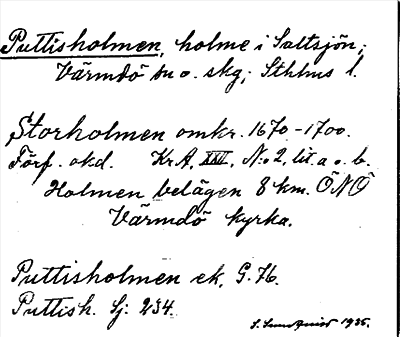 Puttisholmen, holme i Saltsjön,
Värmdö sn o. skg; Sthlms l.
Storholmen omkr. 1670-1700.
Förf. okd. Kr.A, XXV, N:o 2, lit. a o. b.
Holmen belägen 8 km. ÖNÖ
Värmdö kyrka.
Puttisholmen ek. G. 76.
Puttish. Sj: 234.
1935.